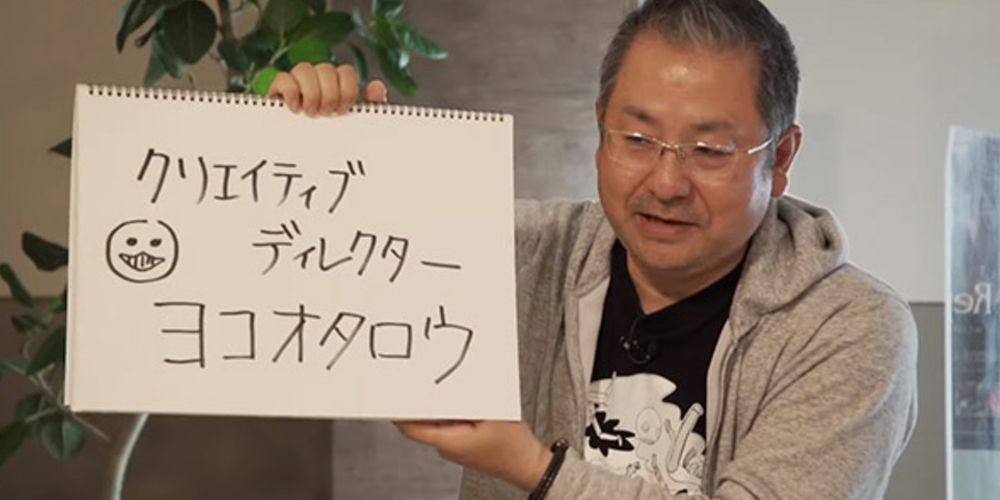 クリエイティブ
ディレクター
ヨコオタロウ